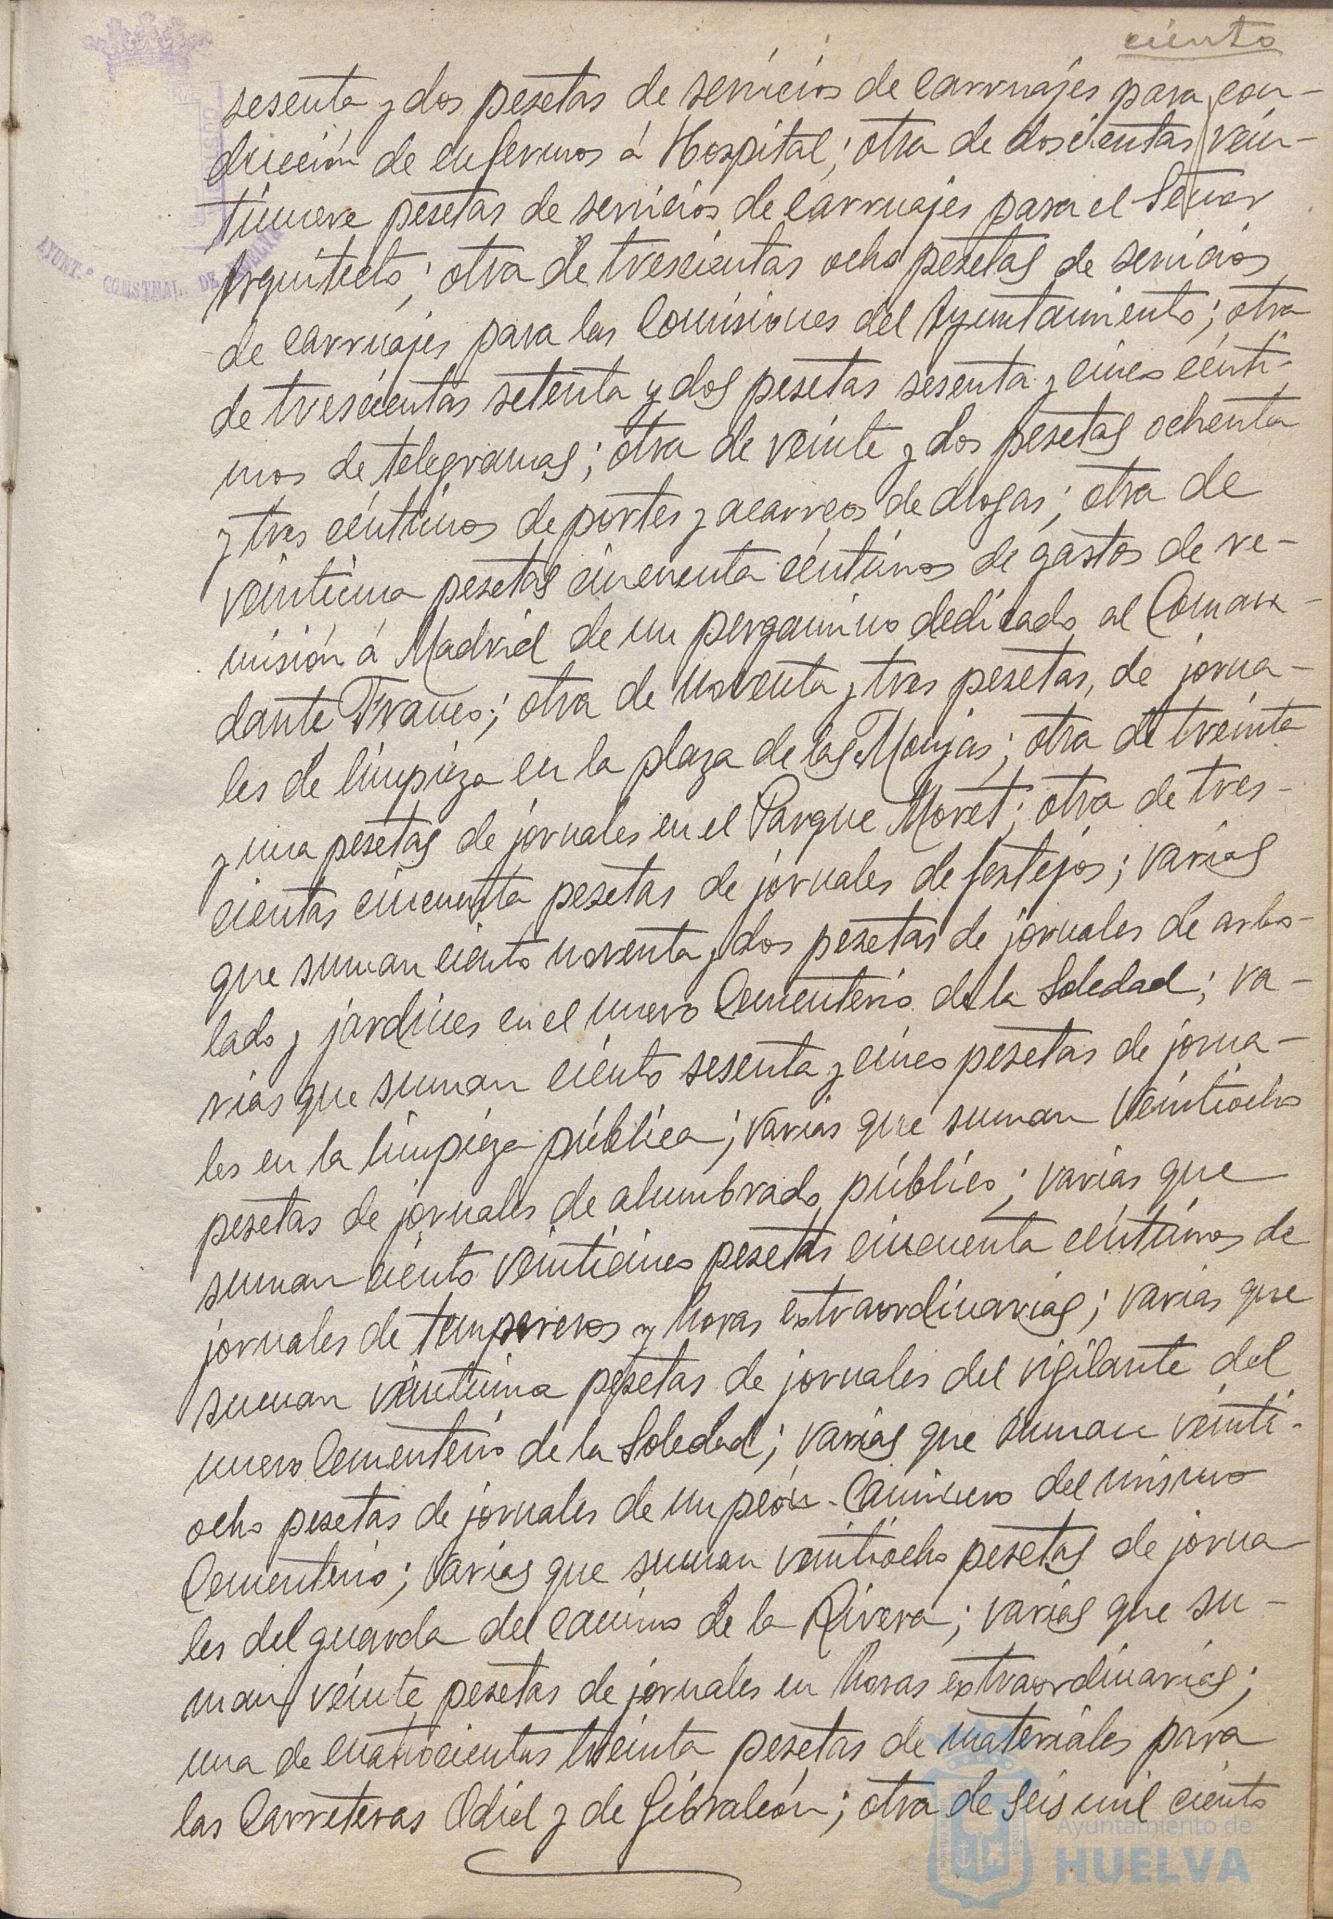 ciento
sesenta y dos pesetas de servicios de carruajes para con-
ducción de enfermos á Hospital; otra de doscientas vein-
tinueve pesetas de servicios de carruajes para el Señor
Arquitecto; otra de trescientas ocho pesetas de servicios
de carruajes para las Comisiones del Ayuntamiento; otra
de trescientas setenta y dos pesetas sesenta y cinco cénti-
mos de telegramas; otra de veinte y dos pesetas ochenta
y tres céntimos de portes y acarreos de drogas; otra de
veintiuna pesetas cincuenta céntimos de gastos de re-
misión á Madrid de un pergamino dedicado al Coman-
dante Franco; otra de noventa y tres pesetas, de jorna-
les de limpieza en la plaza de las Monjas; otra de treinta
y una pesetas de jornales en el Parque Moret; otra de tres-
cientas cincuenta pesetas de jornales de festejos; varias
que suman ciento noventa y dos pesetas de jornales de arbo-
lado y jardines en el nuevo Cementerio de la Soledad; va-
rias que suman ciento sesenta y cinco pesetas de jorna-
les en la limpieza pública; varias que suman veintiocho
pesetas de jornales de alumbrado público; varias que
suman ciento veinticinco pesetas cincuenta céntimos de
jornales de tempereros y horas extraordinarias; varias que
suman veintiuna pesetas de jornales del vigilante del
nuevo Cementerio de la Soledad; varias que suman veinti-
ocho pesetas de jornales de un peón-Caminero del mismo
Cementerio; varias que suman veintiocho pesetas de jorna-
les del guarda del camino de la Rivera; varias que su-
man veinte pesetas de jornales en horas extraordinarias;
una de cuatrocientas treinta pesetas de materiales para
las Carreteras Odiel y de Gibraleón; otra de seis mil ciento
AYUNT.º CONSTNAL. DE HUELVA
Ayuntamiento de
HUELVA